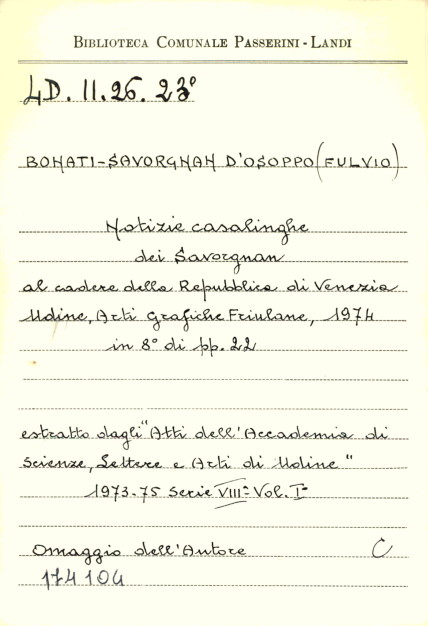 BIBLIOTECA COMUNALE PASSERINI-LANDI
LD. II. 26. 23°
BONATI-SAVORGNAN D'OSOPPO (FULVIO)
Notizie casalinghe
dei Savorgnan
al cadere della Repubblica di Venezia
Udine, Arti Grafiche Friulane, 1974
in 8° di pp. 22
estratto dagli "Atti dell'Accademia di
Scienze, Lettere e Arti di Udine"
1973-75 Serie VIIIª Vol. I°
Omaggio dell'Autore C
174104